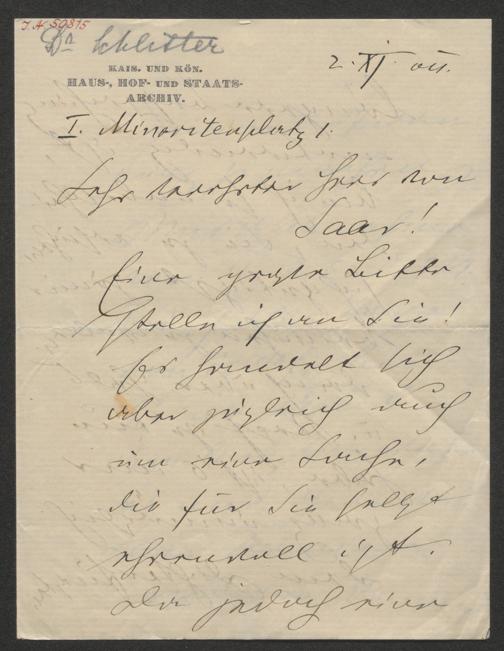 J. N. 50815
Dr Schlitter
KAIS. UND KÖN.
HAUS-, HOF- UND STAATS-
ARCHIV.
2. XI
I. Minoritenplatz 1.
Sehr verehrter Herr von
Saar!
Eine große Bitte
stelle ich an Sie!
Es handelt sich
aber zugleich auch
um eine Sache,
die für Sie selbst
ehrenvoll ist.
Da jedoch eine